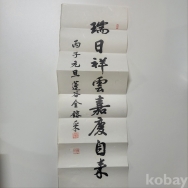 瑞日祥雲嘉慶自來
丙子元旦蓬谷金錫采
kobay